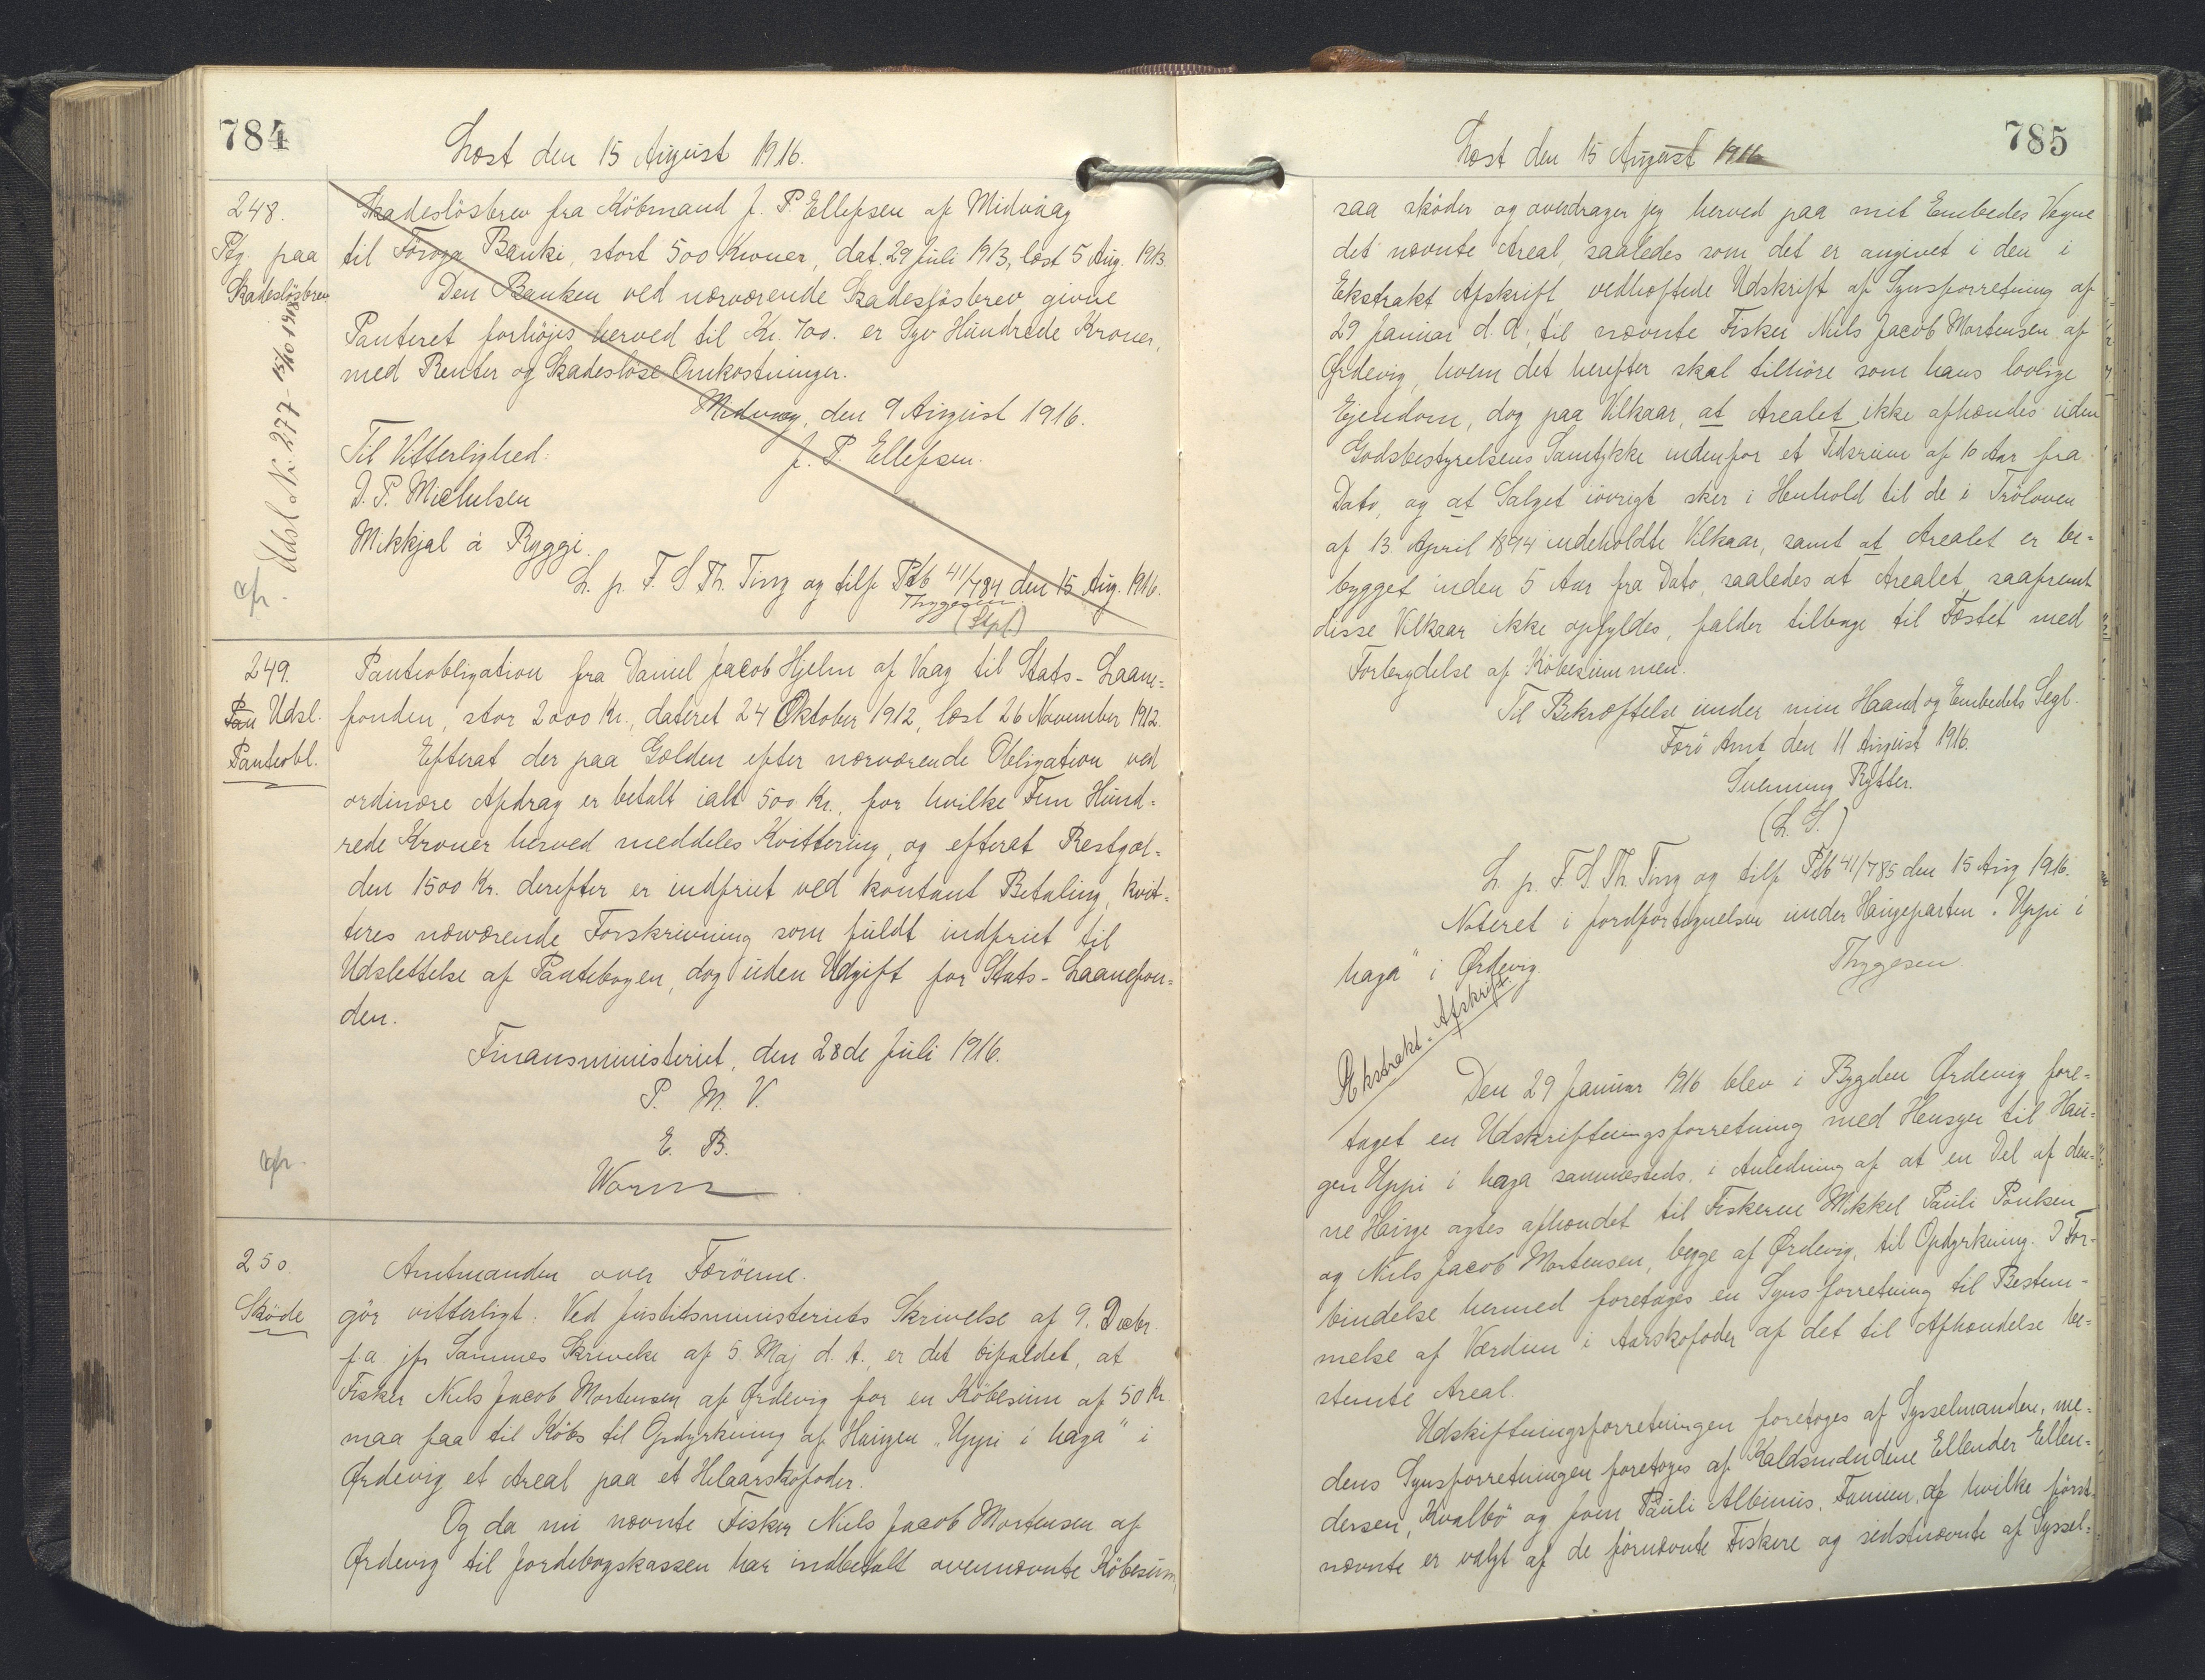 784
Læst den 15 August 1916.
248.
Ptg. paa
Skadeslösbrev
Udsl. Nr. 277 - 15/10 1918
cfr.
Skadeslösbrev fra Köbmand J. P. Ellefsen af Midvaag
til Föroya Banki, stort 500 Kroner, dat. 29 Juli 1913, læst 5 Aug. 1913.
Den Banken ved nærværende Skadeslösbrev givne
Panteret forhöjes herved til Kr. 700. er Syv Hundrede Kroner,
med Renter og Skadeslöse Omkostninger.
Midvaag, den 9 August 1916.
Til Vitterlighed:
J. P. Ellefsen.
D. P. Michelsen
Mikkjal á Ryggi.
L. p. F. S Th. Ting og tilf. Ptb 41/784 den 15 Aug. 1916.
Thygesen
(Stpl)
249.
Pan Udsl.
Panteobl.
cfr.
Panteobligation fra Daniel Jacob Hjelm af Vaag til Stats-Laane-
fonden, stor 2000 Kr., dateret 24 Oktober 1912, læst 26 November 1912.
Efterat der paa Gælden efter nærværende Obligation ved
ordinære Afdrag er betalt ialt 500 Kr., for hvilke Fem Hund-
rede Kroner herved meddeles Kvittering, og efterat Restgæl-
den 1500 Kr. derefter er indfriet ved kontant Betaling, kvit-
teres nærværende Forskrivning som fuldt indfriet til
Udslettelse af Pantebogen, dog uden Udgift for Stats-Laanefon-
den.
Finansministeriet, den 28de Juli 1916.
P. M. V.
E. B.
Worm
250.
Sköde
Amtmanden over Færöerne.
gör vitterligt: Ved Justitsministeriets Skrivelse af 9. Decbr.
f. a. jfr. Sammes Skrivelse af 5. Maj d. A., er det bifaldet, at
Fisker Niels Jacob Mortensen af Ørdevig for en Köbesum af 50 Kr.
maa faa til Köbs til Opdyrkning af Haugen „Uppi i haga" i
Ørdevig et Areal paa et Helaarskofoder.
Og da nu nævnte Fisker Niels Jacob Mortensen af
Ørdevig til Jordebogskassen har indbetalt ovennævnte Köbesum,
785
Læst den 15 August 1916
saa sköder og overdrager jeg herved paa mit Embedes Vegne
det nævnte Areal, saaledes som det er angivet i den i
Ekstrakt Afskrift vedhæftede Udskrift af Synsforretning af
29 Januar d. A., til nævnte Fisker Niels Jacob Mortensen af
Ørdevig, hvem det herefter skal tilhöre som hans lovlige
Ejendom, dog paa Vilkaar, at Arealet ikke afhændes uden
Godsbestyrelsens Samtykke indenfor et Tidsrum af 10 Aar fra
Dato, og at Salget iövrigt sker i Henhold til de i Tröloven
af 13. April 1894 indeholdte Vilkaar, samt at Arealet er be-
bygget inden 5 Aar fra Dato, saaledes at Arealet, saafremt
disse Vilkaar ikke opfyldes, falder tilbage til Fæstet med
Forbrydelse af Köbesummen.
Til Bekræftelse under min Haand og Embedets Segl.
Færö Amt den 11 August 1916.
Svenning Rytter.
(L. S.)
L. p. F. S. Th. Ting og tilf. Ptb 41/785 den 15 Aug 1916.
Noteret i Jordfortegnelsen under Haugeparten „Uppi i
haga" i Ørdevig.
Thygesen
Ekstrakt-Afskrift.
Den 29 Januar 1916 blev i Bygden Ørdevig fore-
taget en Udskriftningsforretning med Hensyn til Hau-
gen Uppi i haga sammesteds, i Anledning af at en Del af den-
ne Hauge agtes afhændet til Fiskerne Mikkel Pauli Poulsen
og Niels Jacob Mortensen, begge af Ørdevig, til Opdyrkning. I For-
bindelse hermed foretages en Synsforretning til Bestem-
melse af Værdien i Aarskofoder af det til Afhændelse be-
stemte Areal.
Udskiftningsforretningen foretoges af Sysselmanden, me-
dens Synsforretningen foretoges af Kaldsmændene Ellender Ellen-
dersen, Kvalbö og Joen Pauli Albinus, Famien, af hvilke först-
nævnte er valgt af de förnævnte Fiskere og sidstnævnte af Syssel-